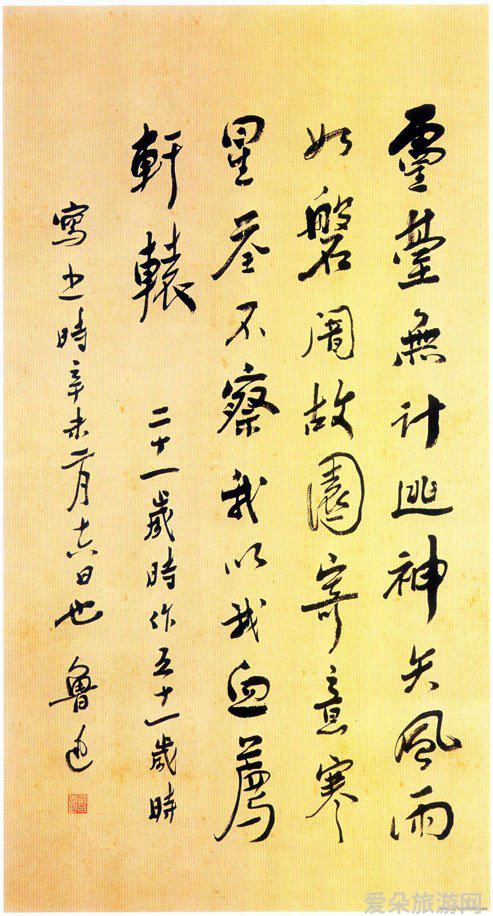 靈臺無計逃神矢風雨
如磐闇故園寄意寒
星荃不察我以我血薦
軒轅 二十一歲時作五十一歲時
寫之時辛未二月十六日也 魯迅
爱朵旅游网